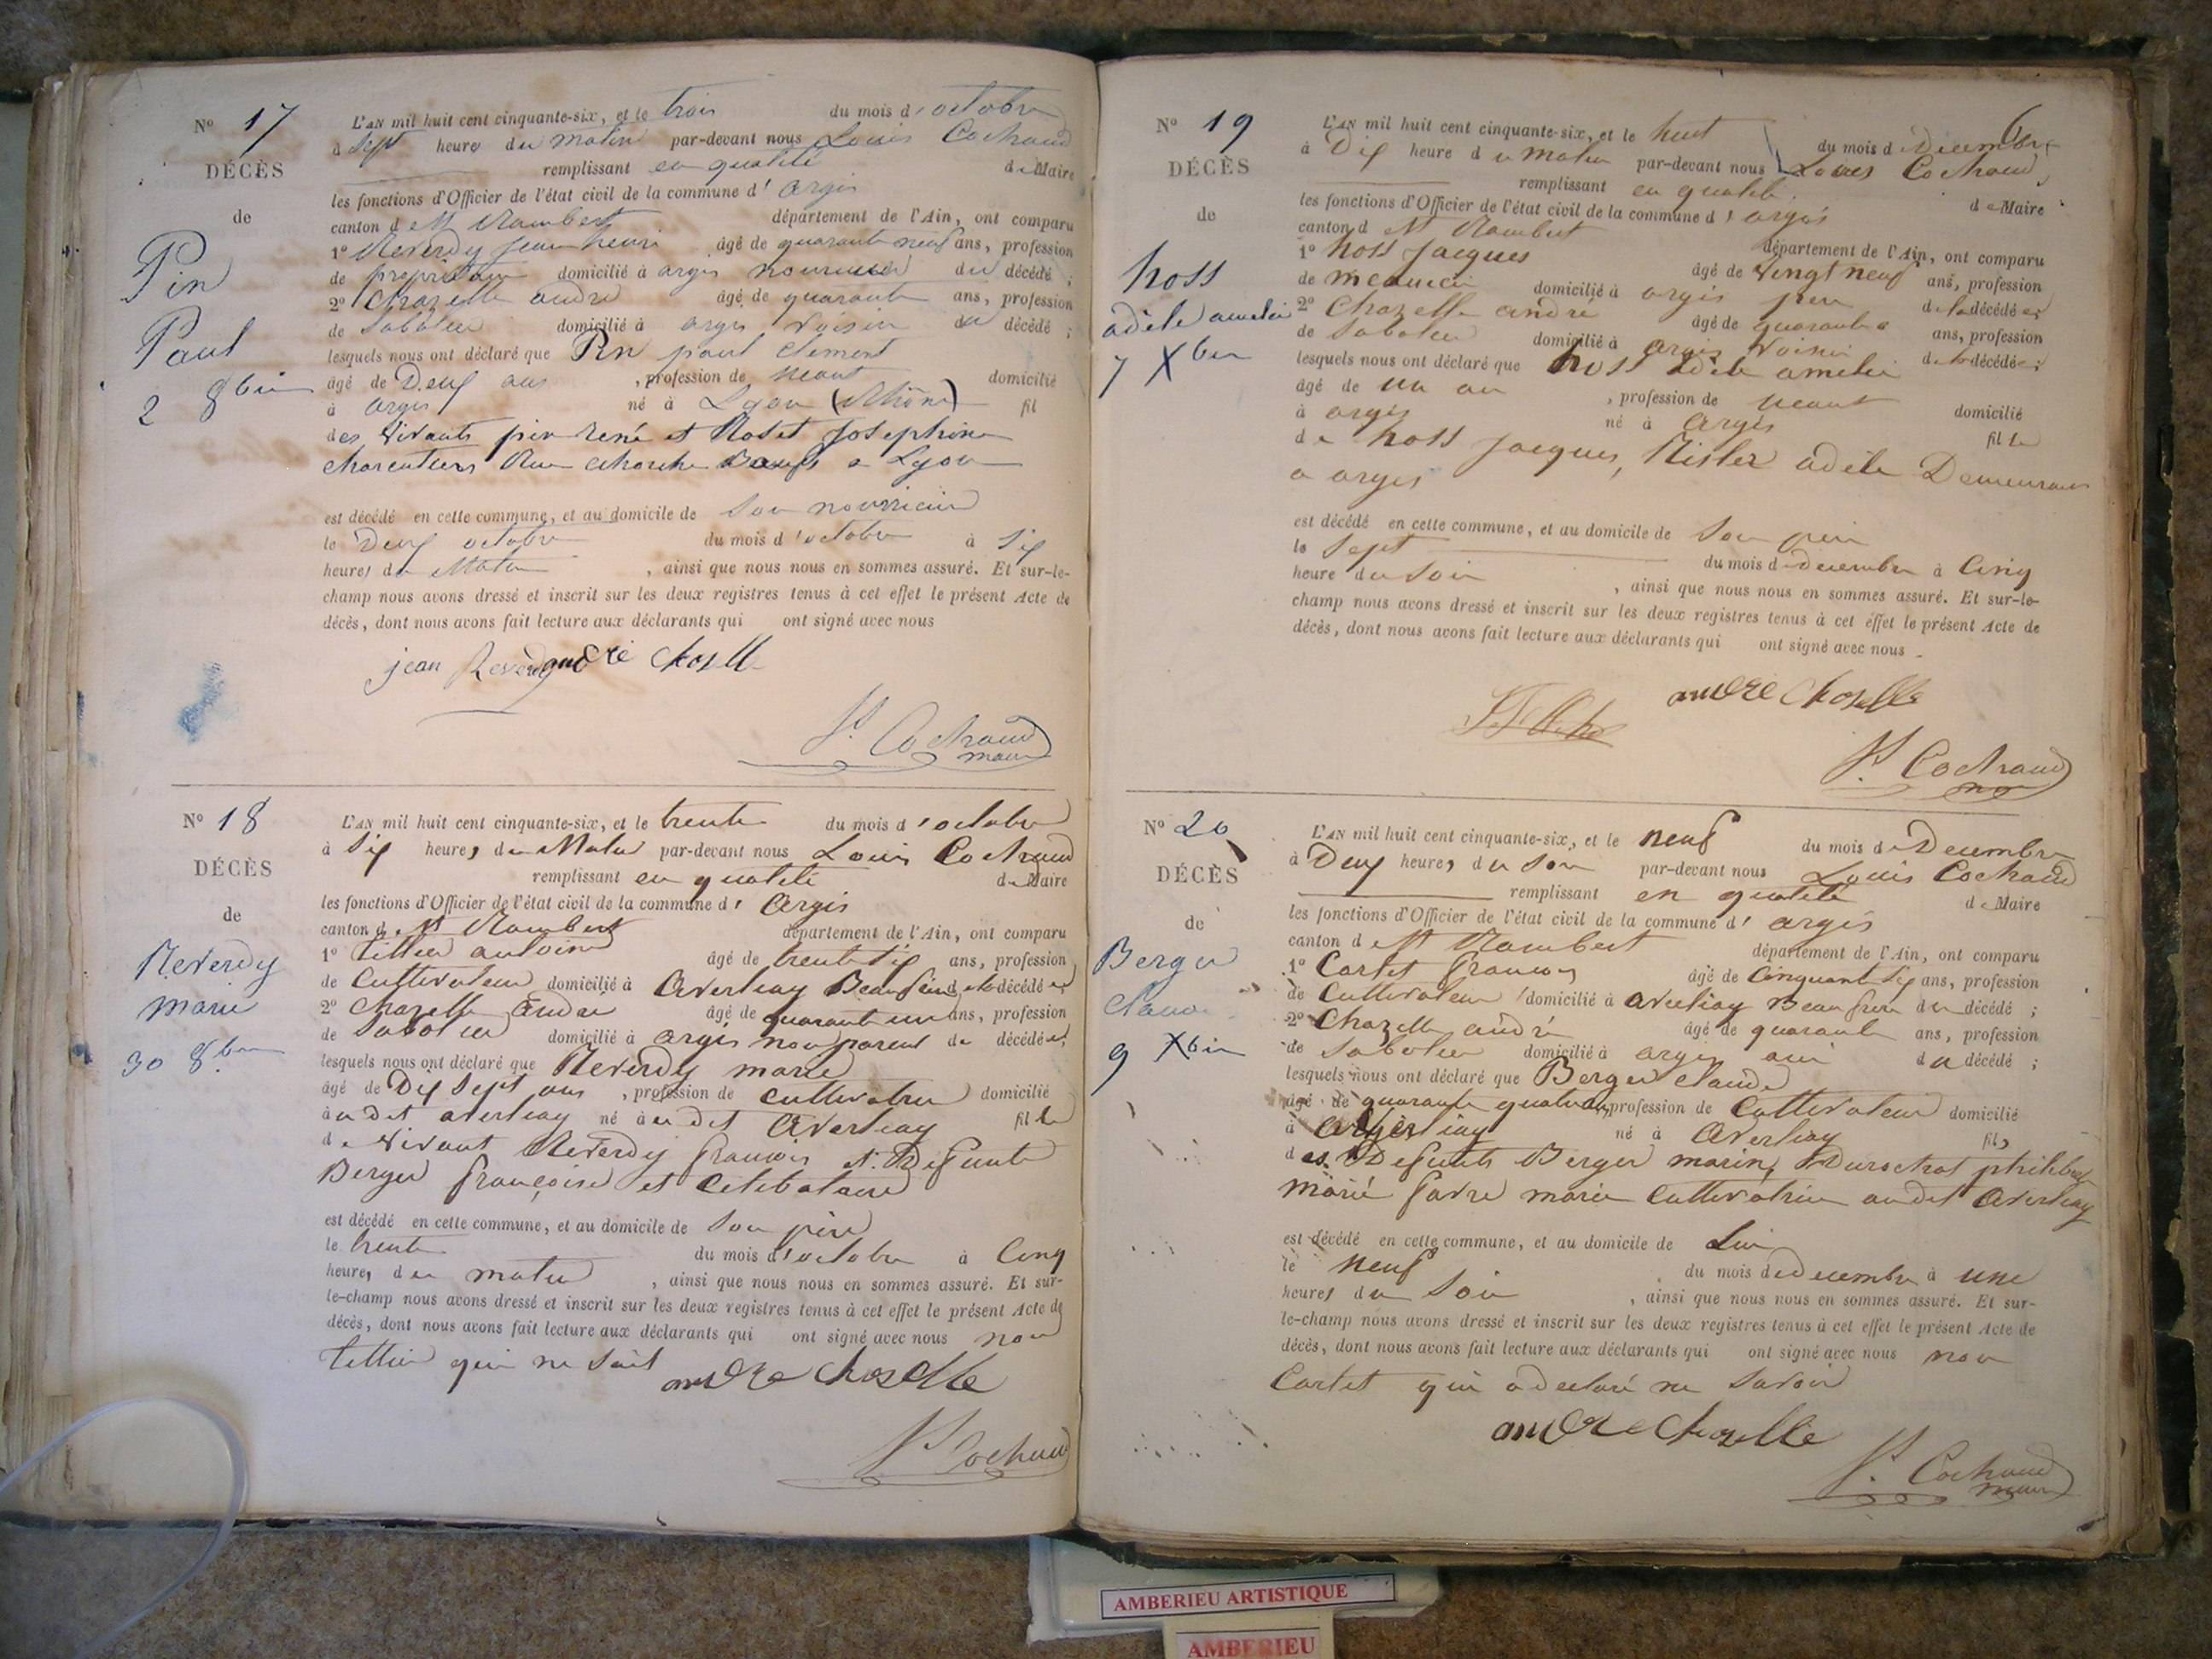 N° 17
DÉCÈS
de
Pin
Paul
2 8bre
L'AN mil huit cent cinquante-six, et le trois du mois d'octobre
à sept heures du matin par-devant nous Louis Cochaud
remplissant en qualité de Maire
les fonctions d'Officier de l'état civil de la commune d'argis
canton de St Rambert département de l'Ain, ont comparu
1° Reverdy jean henri âgé de quarante neuf ans, profession
de propriétaire domicilié à argis nourricier du décédé ;
2° Chazelle andré âgé de quarante ans, profession
de Sabotier domicilié à argis voisin du décédé ;
lesquels nous ont déclaré que Pin paul clement
âgé de Deux ans , profession de neant domicilié
à argis né à Lyon (Rhône) fil
des vivants pin rené et Rodet Josephine
charcutiers Rue à Lyon
est décédé en cette commune, et au domicile de son nourricier
le Deux octobre du mois d'octobre à Six
heures du Matin , ainsi que nous nous en sommes assuré. Et sur-le-
champ nous avons dressé et inscrit sur les deux registres tenus à cet effet le présent Acte de
décès, dont nous avons fait lecture aux déclarants qui ont signé avec nous
jean Reverdy andré choselle
Ls. Cochaud
maire
N° 18
DÉCÈS
de
Reverdy
marie
30 8bre
L'AN mil huit cent cinquante-six, et le trente du mois d'octobre
à Six heures du Matin par-devant nous Louis Cochaud
remplissant en qualité de Maire
les fonctions d'Officier de l'état civil de la commune d'Argis
canton de St Rambert département de l'Ain, ont comparu
1° tillier antoine âgé de trente Six ans, profession
de Cultivateur domicilié à Averliay Beau frère de la décédée
2° Chazelle André âgé de quarante un ans, profession
de Sabotier domicilié à argis non parent de décédée
lesquels nous ont déclaré que Reverdy marie
âgé de Dix Sept ans , profession de cultivatrice domicilié
à udit averliay né à udit Averliay fille
de vivant Reverdy françois et Defunte
Berger françoise et Celibataire
est décédé en cette commune, et au domicile de son père
le trente du mois d'octobre à Cinq
heures du matin , ainsi que nous nous en sommes assuré. Et sur-
le-champ nous avons dressé et inscrit sur les deux registres tenus à cet effet le présent Acte de
décès, dont nous avons fait lecture aux déclarants qui ont signé avec nous non
tillier qui ne Sait andre choselle
Ls Cochaud
6
N° 19
DÉCÈS
de
hoss
adèle amelie
7 Xbre
L'AN mil huit cent cinquante-six, et le huit du mois de Décembre
à Dix heure du matin par-devant nous Louis Cochaud
remplissant en qualité de Maire
les fonctions d'Officier de l'état civil de la commune d'argis
canton de St Rambert département de l'Ain, ont comparu
1° hoss Jacques âgé de vingt neuf ans, profession
de mecanicien domicilié à argis père de la décédée
2° Chazelle andré âgé de quarante ans, profession
de Sabotier domicilié à argis voisin de la décédée ;
lesquels nous ont déclaré que hoss Adele amelie
âgé de un an , profession de neant domicilié
à argis né à Argis fille
de hoss Jacques, Risler adèle Demeurant
a argis
est décédé en cette commune, et au domicile de Son père
le Sept du mois de Decembre à Cinq
heure du Soir , ainsi que nous nous en sommes assuré. Et sur-le-
champ nous avons dressé et inscrit sur les deux registres tenus à cet effet le présent Acte de
décès, dont nous avons fait lecture aux déclarants qui ont signé avec nous
andre choselle
Ls Cochaud
N° 20
DÉCÈS
de
Berger
Claude
9 Xbre
L'AN mil huit cent cinquante-six, et le neuf du mois de Decembre
à Deux heures du Soir par-devant nous Louis Cochaud
remplissant en qualité de Maire
les fonctions d'Officier de l'état civil de la commune d'argis
canton de St Rambert département de l'Ain, ont comparu
1° Cortet francois âgé de Cinquante Six ans, profession
de Cultivateur domicilié à averliay Beau frère du décédé ;
2° Chazelle andré âgé de quarante ans, profession
de Sabotier domicilié à argis ami du décédé ;
lesquels nous ont déclaré que Berger Claude
âgé de quarante quatre ans, profession de Cultivateur domicilié
à Averliay né à Averliay fils
des Defunts Berger marin, Durochat philiberte
marié favre marie Cultivatrice audit Averliay
est décédé en cette commune, et au domicile de Lui
le neuf du mois de Decembre à une
heures du Soir , ainsi que nous nous en sommes assuré. Et sur-
le-champ nous avons dressé et inscrit sur les deux registres tenus à cet effet le présent Acte de
décès, dont nous avons fait lecture aux déclarants qui ont signé avec nous non
Cortet qui a declaré ne Savoir
andre choselle
Ls. Cochaud
maire
AMBERIEU ARTISTIQUE
AMBERIEU